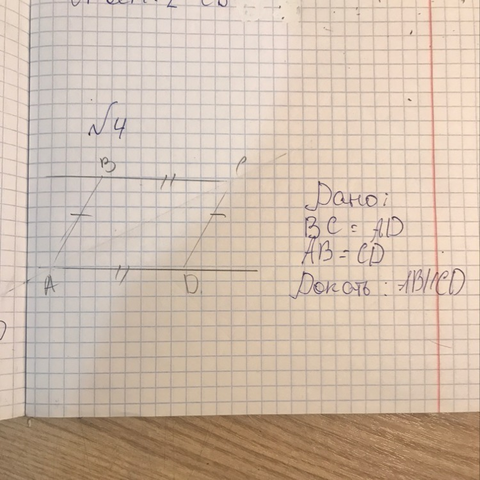 №4
B C
A D
Дано:
BC = AD
AB = CD
Докать: AB||CD